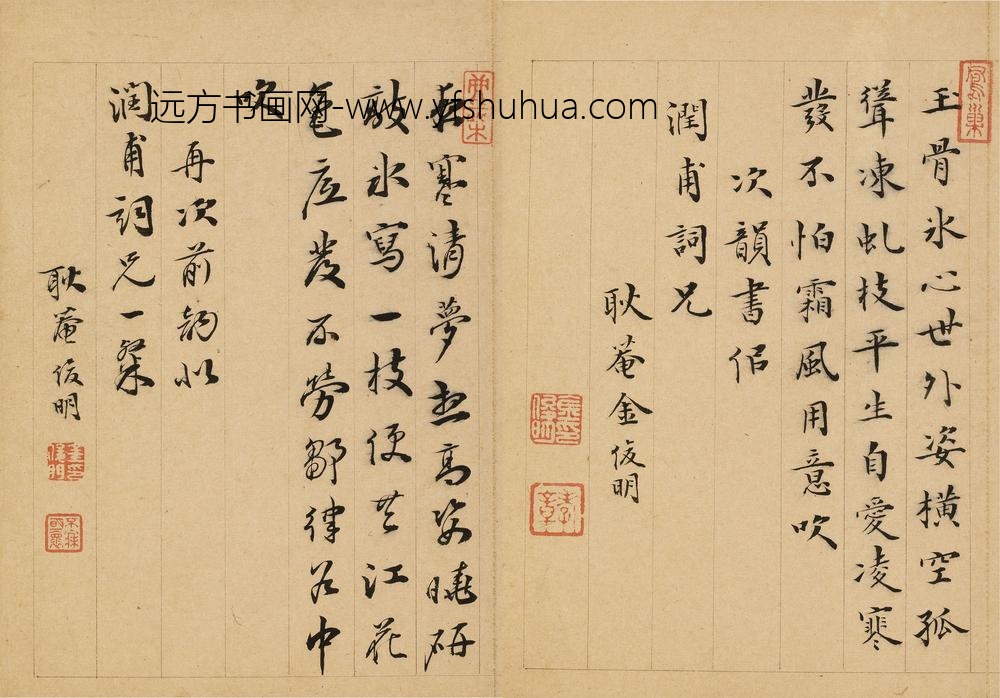 玉骨冰心世外姿橫空孤
聳凍虬枝平生自愛凌寒
發不怕霜風用意吹
次韻書佀
潤甫詞兄
耿菴金俊明
寒清夢高姿曉研
敲冰寫一枝便共江花
應發不勞鄒律谷中
吹
再次前韵似
潤甫詞兄一粲
耿菴俊明
远方书画网-www.yfshuhua.com